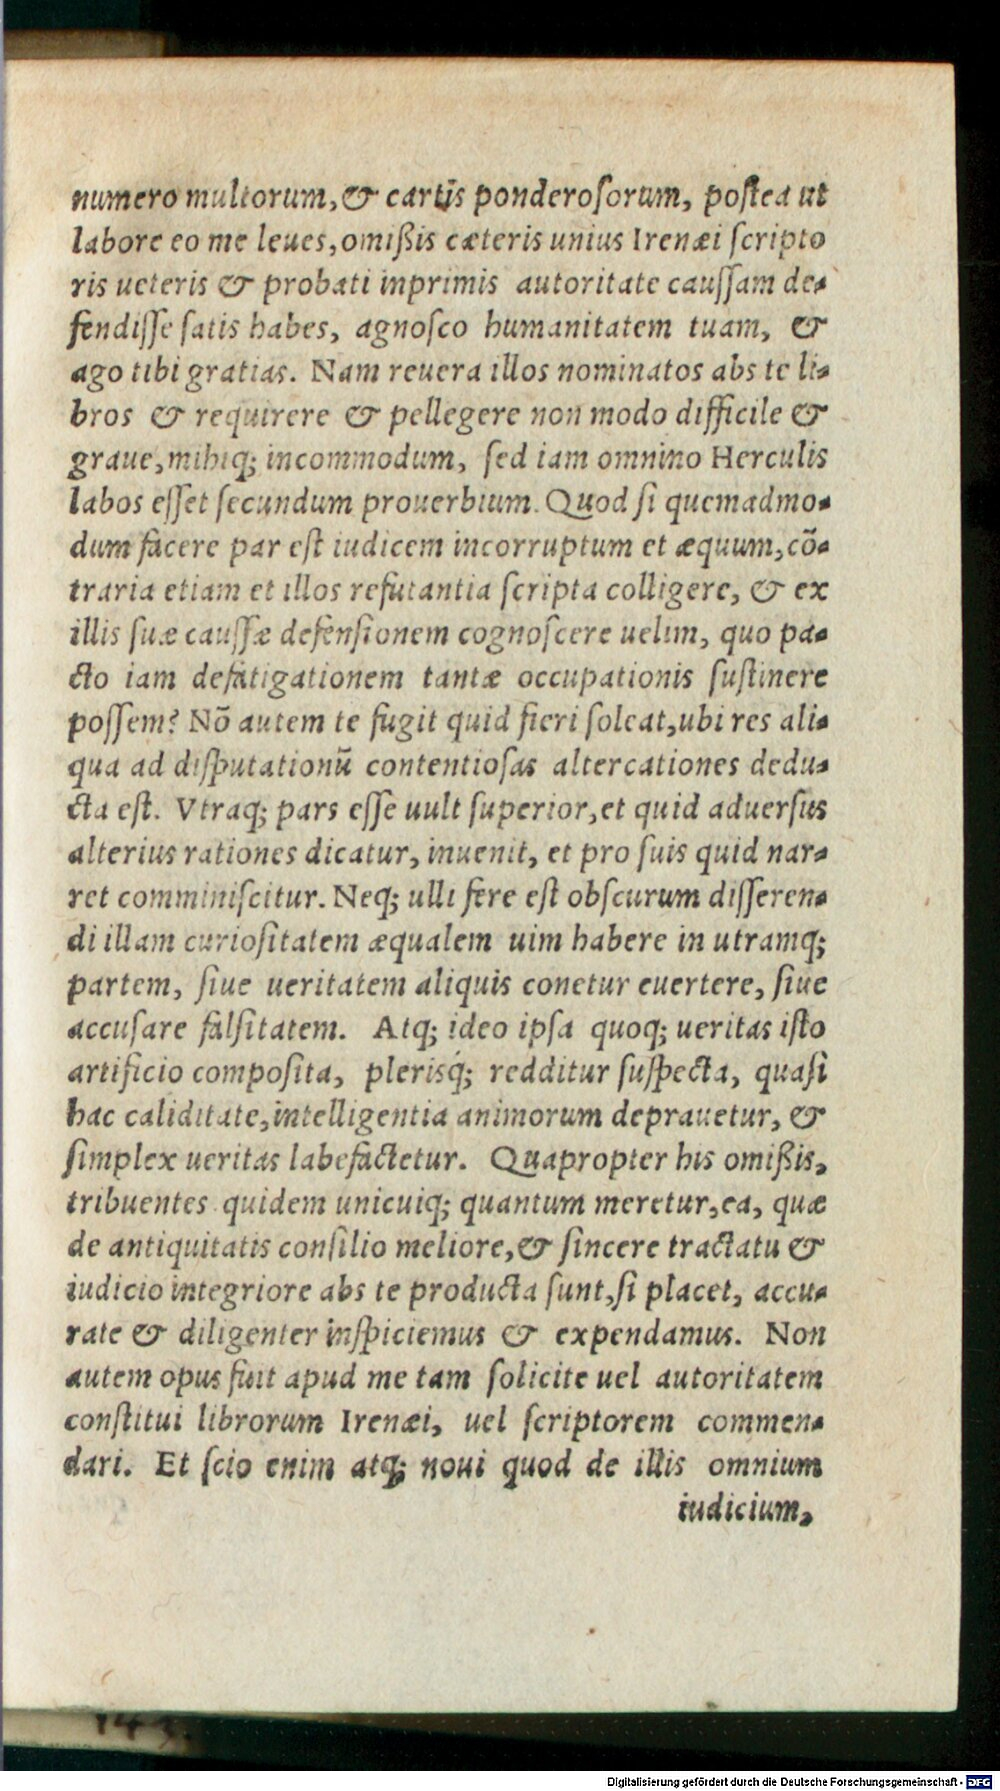 numero multorum, & cartis ponderosorum, postea ut
labore eo me leues, omißis cæteris unius Irenæi scripto
ris ueteris & probati inprimis autoritate caussam de-
fendisse satis habes, agnosco humanitatem tuam, &
ago tibi gratias. Nam reuera illos nominatos abs te li-
bros & requirere & pellegere non modo difficile &
graue, mihiq; incommodum, sed iam omnino Herculis
labos esset secundum prouerbium. Quod si quemadmo-
dum facere par est iudicem incorruptum et æquum, cō-
traria etiam et illos refutantia scripta colligere, & ex
illis suæ caussæ defensionem cognoscere uelim, quo pa-
cto iam defatigationem tantæ occupationis sustinere
possem? Nō autem te fugit quid fieri soleat, ubi res ali-
qua ad disputationū contentiosas altercationes dedu-
cta est. Vtraq; pars esse uult superior, et quid aduersus
alterius rationes dicatur, inuenit, et pro suis quid nar-
ret comminiscitur. Neq; ulli fere est obscurum disseren-
di illam curiositatem æqualem uim habere in utramq;
partem, siue ueritatem aliquis conetur euertere, siue
accusare falsitatem. Atq; ideo ipsa quoq; ueritas isto
artificio composita, plerisq́; redditur suspecta, quasi
hac caliditate, intelligentia animorum deprauetur, &
simplex ueritas labefactetur. Quapropter his omißis,
tribuentes quidem unicuiq; quantum meretur, ea, quæ
de antiquitatis consilio meliore, & sincere tractatu &
iudicio integriore abs te producta sunt, si placet, accu-
rate & diligenter inspiciemus & expendamus. Non
autem opus fuit apud me tam solicite uel autoritatem
constitui librorum Irenæi, uel scriptorem commen-
dari. Et scio enim atq; noui quod de illis omnium
iudicium,
Digitalisierung gefördert durch die Deutsche Forschungsgemeinschaft - DFG